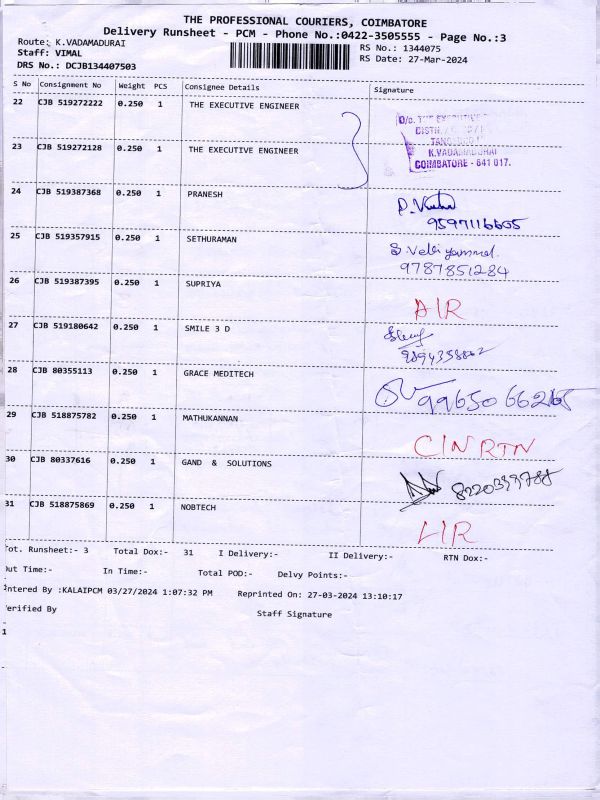 THE PROFESSIONAL COURIERS, COIMBATORE
Delivery Runsheet - PCM - Phone No.:0422-3505555 - Page No.:3
Route: K.VADAMADURAI
RS No.: 1344075
Staff: VIMAL
RS Date: 27-Mar-2024
DRS No.: DCJB134407503
S No Consignment No Weight PCS Consignee Details Signature
22 CJB 519272222 0.250 1 THE EXECUTIVE ENGINEER
K.VADAMADURAI
COIMBATORE - 641 017.
23 CJB 519272128 0.250 1 THE EXECUTIVE ENGINEER
24 CJB 519387368 0.250 1 PRANESH
9597116605
25 CJB 519357915 0.250 1 SETHURAMAN
9787851284
26 CJB 519387395 0.250 1 SUPRIYA
AIR
27 CJB 519180642 0.250 1 SMILE 3 D
28 CJB 80355113 0.250 1 GRACE MEDITECH
29 CJB 518875782 0.250 1 MATHUKANNAN
CIN RTN
30 CJB 80337616 0.250 1 GAND & SOLUTIONS
31 CJB 518875869 0.250 1 NOBTECH
Tot. Runsheet:- 3 Total Dox:- 31 I Delivery:- II Delivery:- RTN Dox:-
Out Time:- In Time:- Total POD:- Delvy Points:-
Entered By :KALAIPCM 03/27/2024 1:07:32 PM Reprinted On: 27-03-2024 13:10:17
Verified By Staff Signature
1